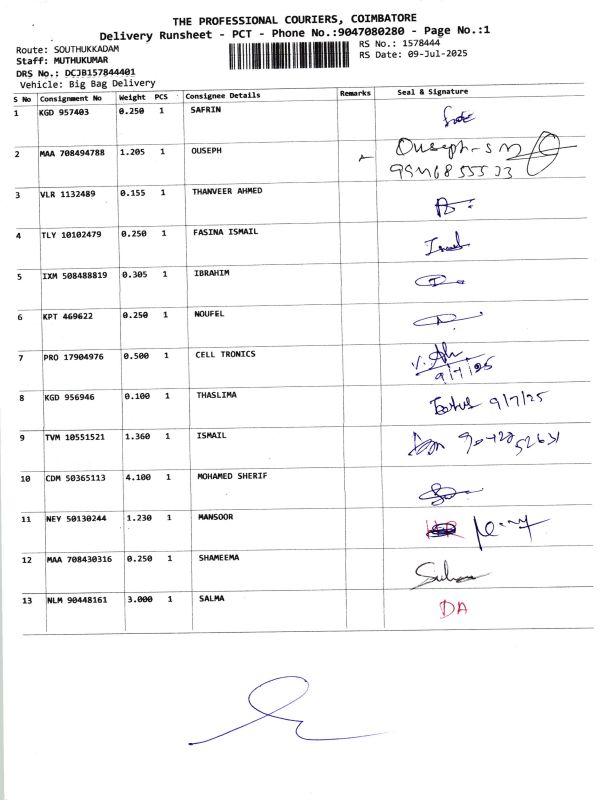 THE PROFESSIONAL COURIERS, COIMBATORE
Delivery Runsheet - PCT - Phone No.:9047080280 - Page No.:1
Route: SOUTHUKKADAM
RS No.: 1578444
Staff: MUTHUKUMAR
RS Date: 09-Jul-2025
DRS No.: DCJB157844401
Vehicle: Big Bag Delivery
S No Consignment No Weight PCS Consignee Details Remarks Seal & Signature
1 KGD 957403 0.250 1 SAFRIN
2 MAA 708494788 1.205 1 OUSEPH Ouseph-
3 VLR 1132489 0.155 1 THANVEER AHMED
4 TLY 10102479 0.250 1 FASINA ISMAIL
5 IXM 508488819 0.305 1 IBRAHIM
6 KPT 469622 0.250 1 NOUFEL
7 PRO 17904976 0.500 1 CELL TRONICS
9/7/25
8 KGD 956946 0.100 1 THASLIMA 9/7/25
9 TVM 10551521 1.360 1 ISMAIL
10 CDM 50365113 4.100 1 MOHAMED SHERIF
11 NEY 50130244 1.230 1 MANSOOR
12 MAA 708430316 0.250 1 SHAMEEMA
13 NLM 90448161 3.000 1 SALMA DA